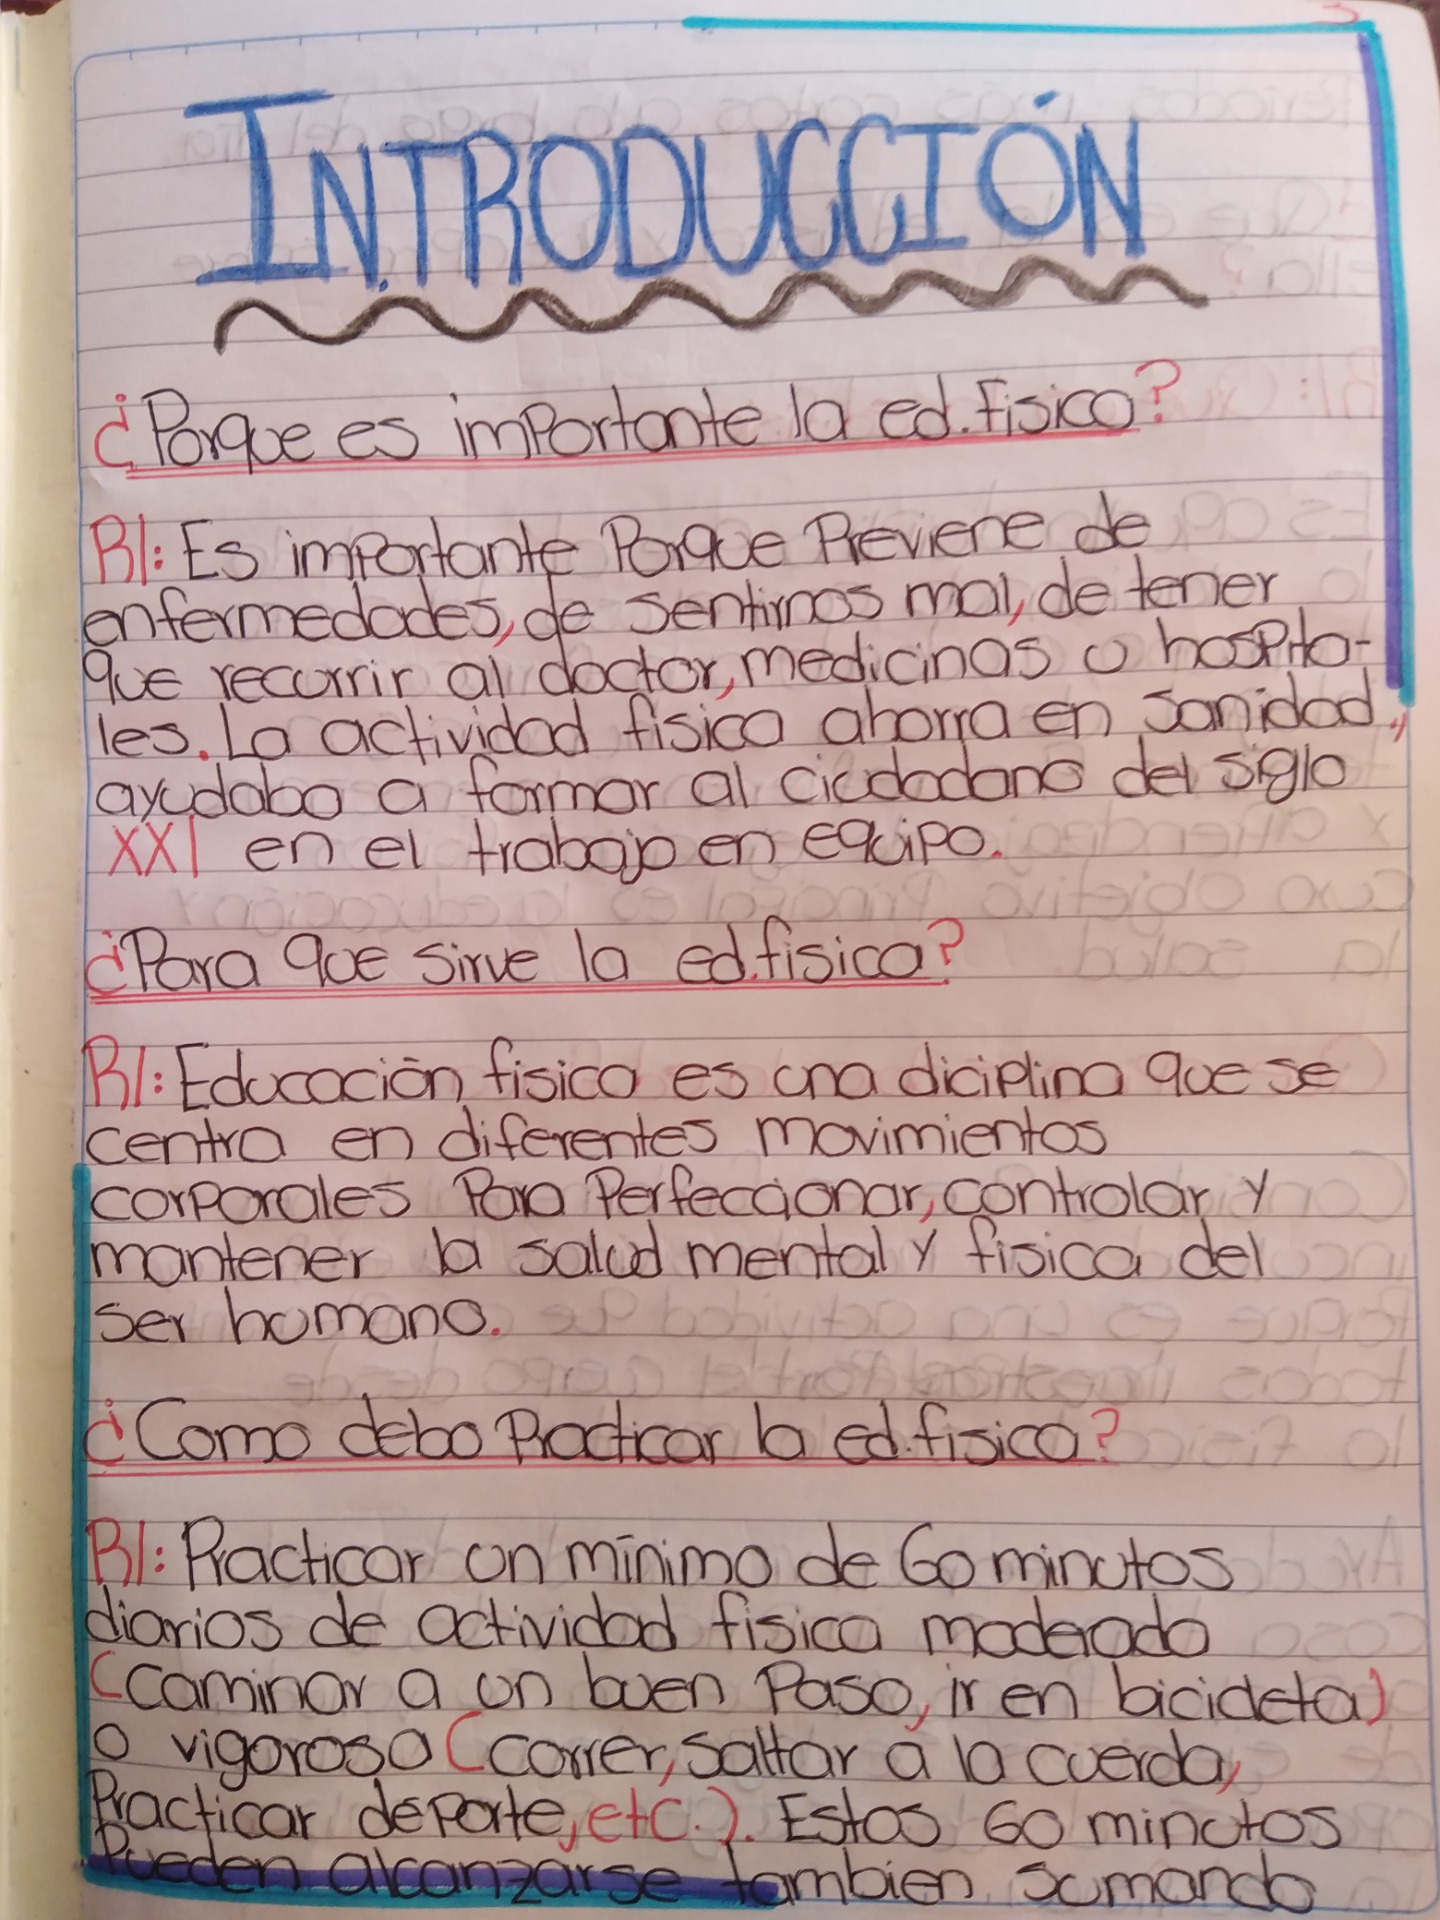 INTRODUCCIÓN
¿Porque es importante la ed. fisica?
R/: Es importante Porque Previene de
enfermedades, de sentirnos mal, de tener
que recurrir al doctor, medicinas u hospita-
les. La actividad fisica ahorra en sanidad,
ayudaba a formar al ciudadano del siglo
XXI en el trabajo en equipo.
¿Para que sirve la ed. fisica?
R/: Educación fisica es una diciplina que se
centra en diferentes movimientos
corporales Para Perfeccionar, controlar y
mantener la salud mental y fisica del
ser humano.
¿Como debo Practicar la ed. fisica?
R/: Practicar un mínimo de 60 minutos
diarios de actividad fisica moderada
(caminar a un buen Paso, ir en bicicleta)
o vigorosa (correr, saltar a la cuerda,
Practicar deporte, etc.). Estos 60 minutos
Pueden alcanzarse tambien sumando